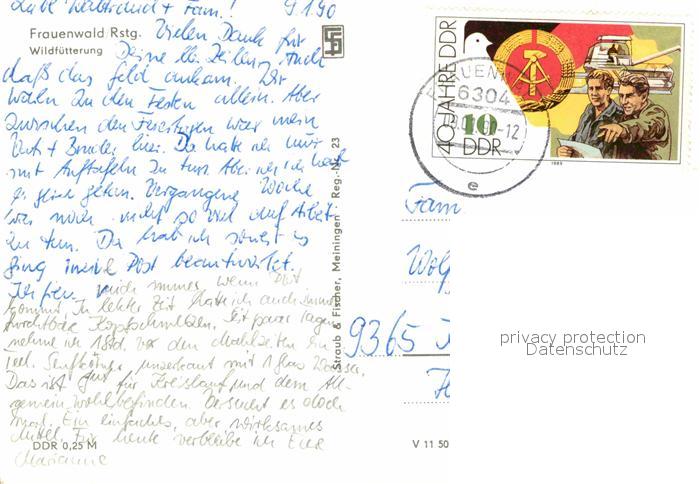 Liebe Waltraud + Fam.! 9.1.90
Frauenwald Rstg.
Wildfütterung
Vielen Dank für
Deine lb. Zeilen, auch
daß das Geld ankam. Wir
waren zu den Festen allein. Aber
zwischen den Feiertagen war mein
+ Bruder hier. Da hatte ich nur
mit zu tun. Aber
gern getan. Vergangene Woche
war noch nicht so viel auf Arbeit
zu tun. Da hab ich
ging meine Post beantwortet.
Ich freu mich immer wenn Post
kommt. In letzter Zeit hatte ich auch immer
furchtbare Kopfschmerzen. Seit paar Tagen
nehme ich 1 Std. vor den Mahlzeiten ein
Teel. Senfkörner unzerkaut mit 1 Glas Wasser.
Das ist gut für Kreislauf und dem All-
gemein Wohlbefinden. Versucht es doch
mal. Ein einfaches, aber wirksames
Mittel. Für heute verbleibe ich Eure
Marianne
DDR 0,25 M
V 11 50
Straub & Fischer, Meiningen · Reg.-Nr. 23
40 JAHRE DDR
10
DDR
1989
6304
-12
e
Fam
Wolf
9365
privacy protection
Datenschutz